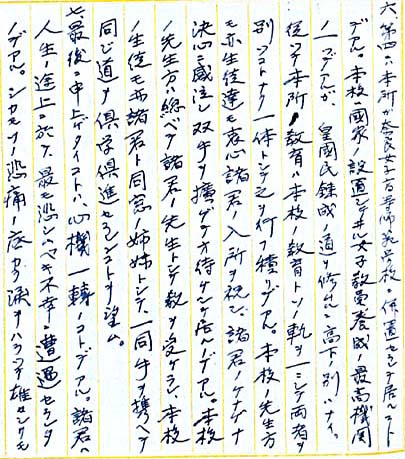 六、第四ハ本所が奈良女子高等師範学校ニ併置セラレ居ルコト
デアル。本校ハ国家ノ設置シテヰル女子教員養成ノ最高機関
ノ一ツデアルガ、皇國民錬成ノ道ヲ修スルニ高下ノ別ハナイ。
従ツテ本所ノ教育ハ本校ノ教育トソノ軌ヲ一ニシテ両者ヲ
別ツコトナク一体トシテ之ヲ行フ積リデアル。本校ノ先生方
モ亦生徒達モ衷心諸君ノ入所ヲ祝シ、諸君ノケナゲナ
決心ニ感泣シ双手ヲ擴ゲテオ待チシテ居ルノデアル。本校
ノ先生方ハ総ベテ諸君ノ先生トシテ教ヲ受ケラレ、本校
ノ生徒モ亦諸君ト同窓ノ姉妹トシテ、一同手ヲ携ヘテ
同じ道ヲ倶学倶進セランコトヲ望ム。
七、最後ニ申上ゲタイコトハ、心機一轉ノコトデアル。諸君ハ
人生ノ途上ニ於テ、最モ悲シムベキ不幸ニ遭遇セラレタ
ノデアル。シカモソノ悲痛ノ底カラ涙ヲハラツテ雄々シクモ